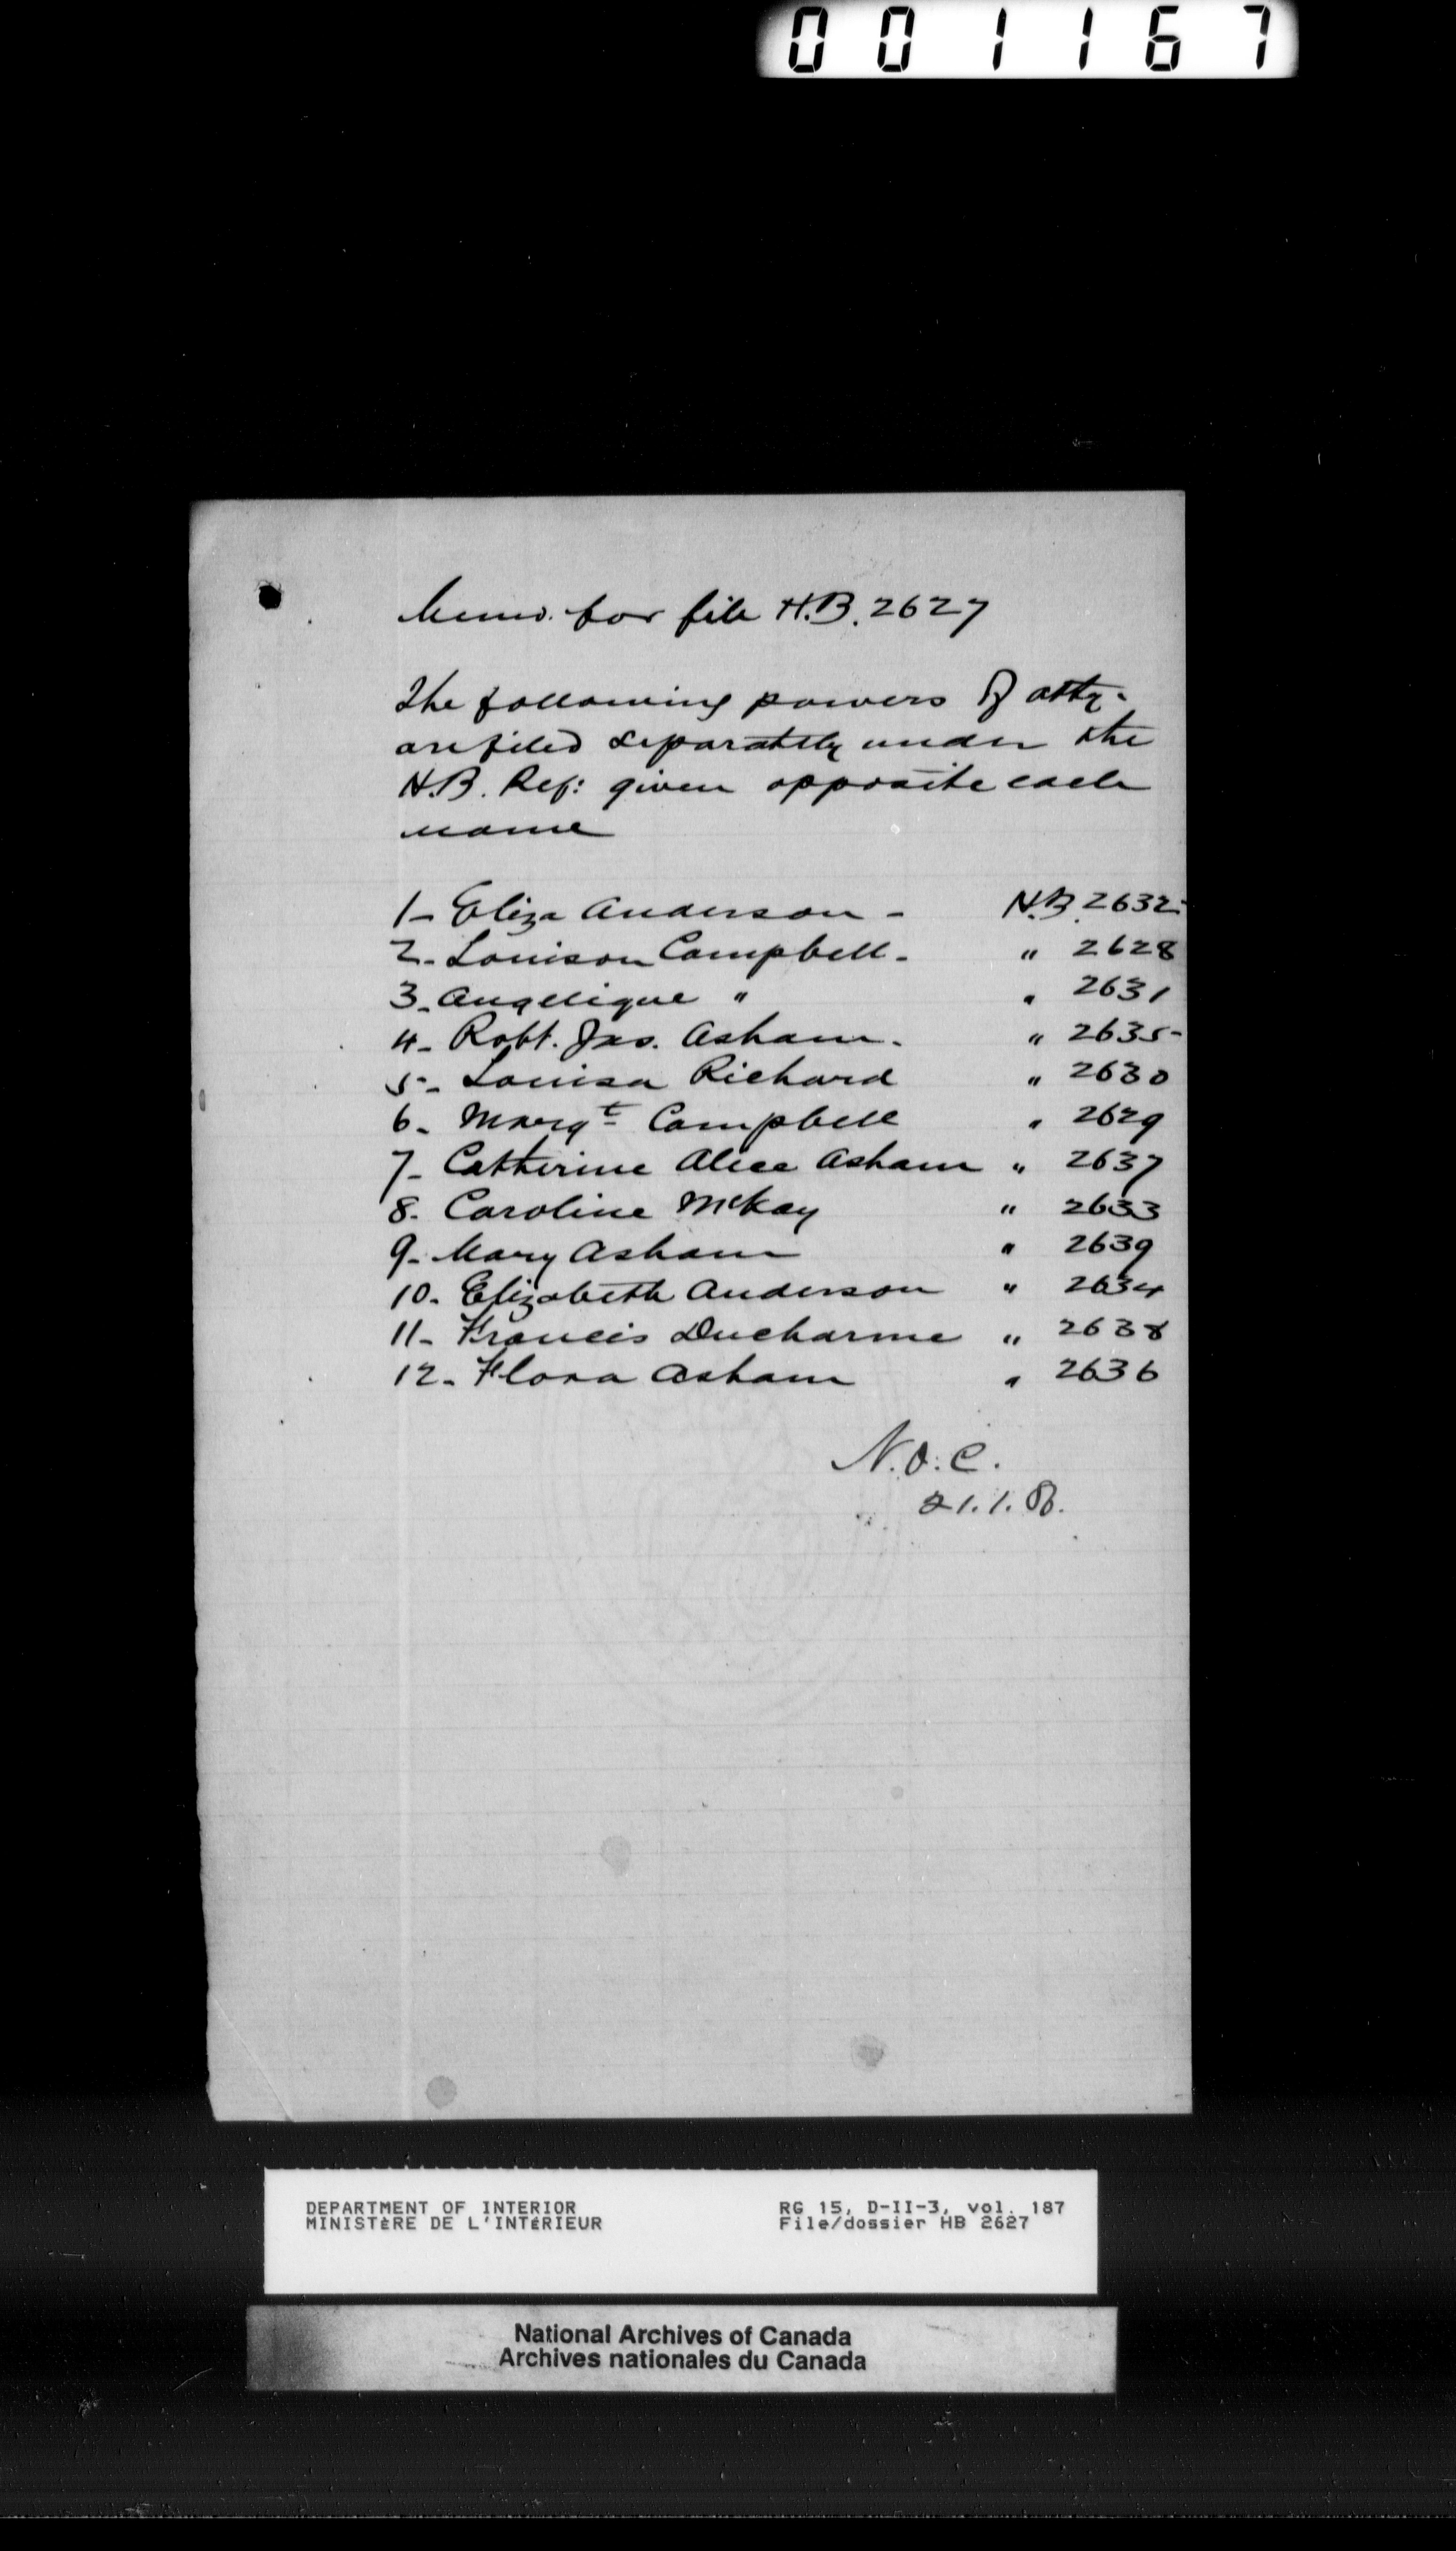 001167
Memo. for file H.B. 2627
The following powers of atty.
are filed separately under the
H.B. Ref: given opposite each
name
1- Eliza Anderson - H.B. 2632
2- Louison Campbell - " 2628
3- Angelique " " 2631
4- Robt. Jas. Asham - " 2635
5- Louisa Richard " 2630
6- Margt Campbell " 2629
7- Catherine Alice Asham " 2637
8- Caroline McKay " 2633
9- Mary Asham " 2639
10- Elizabeth Anderson " 2634
11- Francis Ducharme " 2638
12- Flora Asham " 2636
N.O.C.
21.1.
DEPARTMENT OF INTERIOR RG 15, D-II-3, vol. 187
MINISTÈRE DE L'INTÉRIEUR File/dossier HB 2627
National Archives of Canada
Archives nationales du Canada